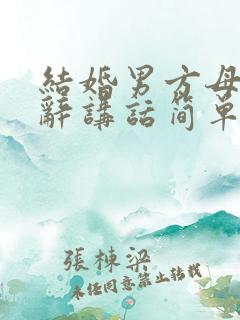 結婚男方母
辭講話简單
張棟梁
未经同意禁止转载